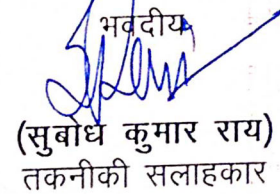 भवदीय
(सुबोध कुमार राय)
तकनीकी सलाहकार